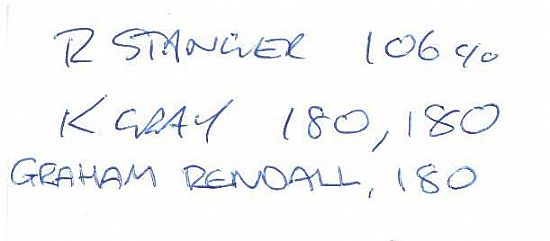 R STANGER 106 c/o
K GRAY 180, 180
GRAHAM RENDALL, 180